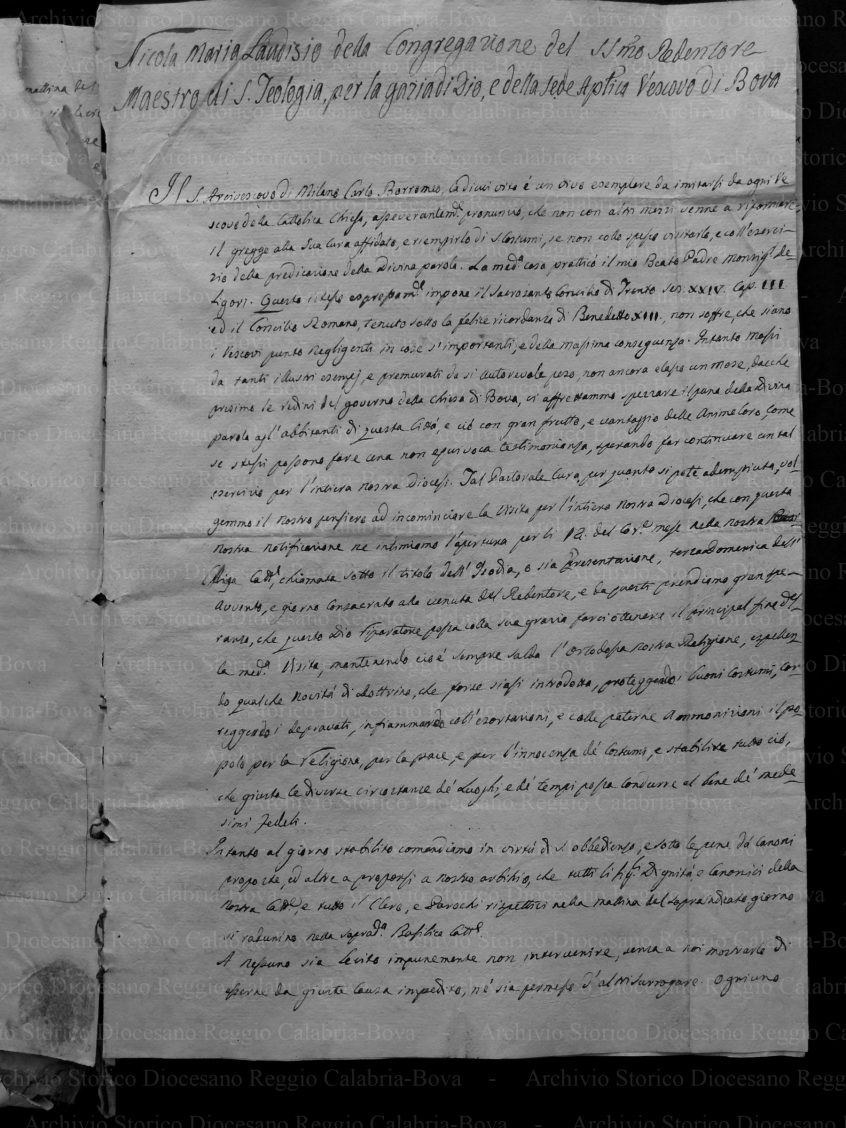 Nicola Maria Laudisio della Congregazione del SSmo Redentore
Maestro di S. Teologia, per la grazia di Dio, e della Sede Aptica Vescovo di Bova
Il S. Arcivescovo di Milano Carlo Borromeo, la di cui vita é un vivo esemplare da imitarsi da ogni Ve-
scovo della Cattolica Chiesa, asseverantemte pronunciò, che non con altri mezzi venne a riformare
il gregge alla sua cura affidato, e riempirlo di S. Costumi, se non colle spesse visitarlo, e coll'eserci-
zio della predicazione della Divina parola. La meda cosa pratticó il mio Beato Padre Monsigr de
Ligori. Questo istesso espressamte impone il Sacrosanto Concilio di Trento Ses. XXIV. Cap. III
ed il Concilio Romano, tenuto sotto la felice ricordanza di Benedetto XIII, non soffre, che siano
i Vescovi punto negligenti in cose s'importanti, e della massima conseguenza. Intanto mossi
da tanti illustri esempj, e premurati da sì autorevole peso, non ancora elasso un mese, dacche
presimo le redini del governo della Chiesa di Bova, ci affrettammo spezzare il pane della Divina
parola agl'abbitanti di questa Cittá, e ció con gran frutto, e vantaggio delle Anime loro, come
se stessi possono fare una non equivoca testimonianza, sperando far continuare un tal
esercizio per l'intiera nostra diocesi. Tal Pastorale Cura, per quanto si potè adempiuta, vol-
gemmo il nostro pensiero ad incominciare la Visita per l'intiera nostra Diocesi, che con questa
nostra notificazione ne intimiamo l'apertura per li 12. del Corte mese nella nostra
Chiesa Cattle, chiamata sotto il titolo dell'Isodia, o sia Presentazione, terza Domenica dell'
Avvento, e giorno consacrato alla venuta del Redentore, e da questi prendiamo gran spe-
ranza, che questo Dio riparatore possa colla sua grazia farci ottenere il principal fine del-
la meda Visita, mantenendo cioé sempre salda l'Ortodossa nostra Religione, espellen-
do qualche novitá di dottrina, che forse siasi introdotta, proteggendo i buoni Costumi, cor-
reggendo i depravati, infiammando coll'esortazioni, e colle paterne Ammonizioni il po-
polo per la religione, per la pace, e per l'innocenza dé costumi, e stabilire tutto ciò,
che giusta le diverse circostanze dé Luoghi, e dé tempi possa condurre al bene dé mede-
simi Fedeli.
Intanto al giorno stabilito comandiamo in virtú di S. obbedienza, e sotto le pene dá Canoni
proposte, ed altre a proporsi a nostro arbitrio, che tutti li Dignitá e Canonici della
nostra Cattle, e tutto il Clero, e Parochi rispettivi nella mattina del sopraindicato giorno
si radunino nella soprada Basilica Cattle
A nessuno sia lecito impunemente non intervenire, senza a noi mostrarlo di
esserne da giusta causa impedito, né sia permesso d'altri surrogare. Ogniuno
Archivio Storico Diocesano Reggio Calabria-Bova